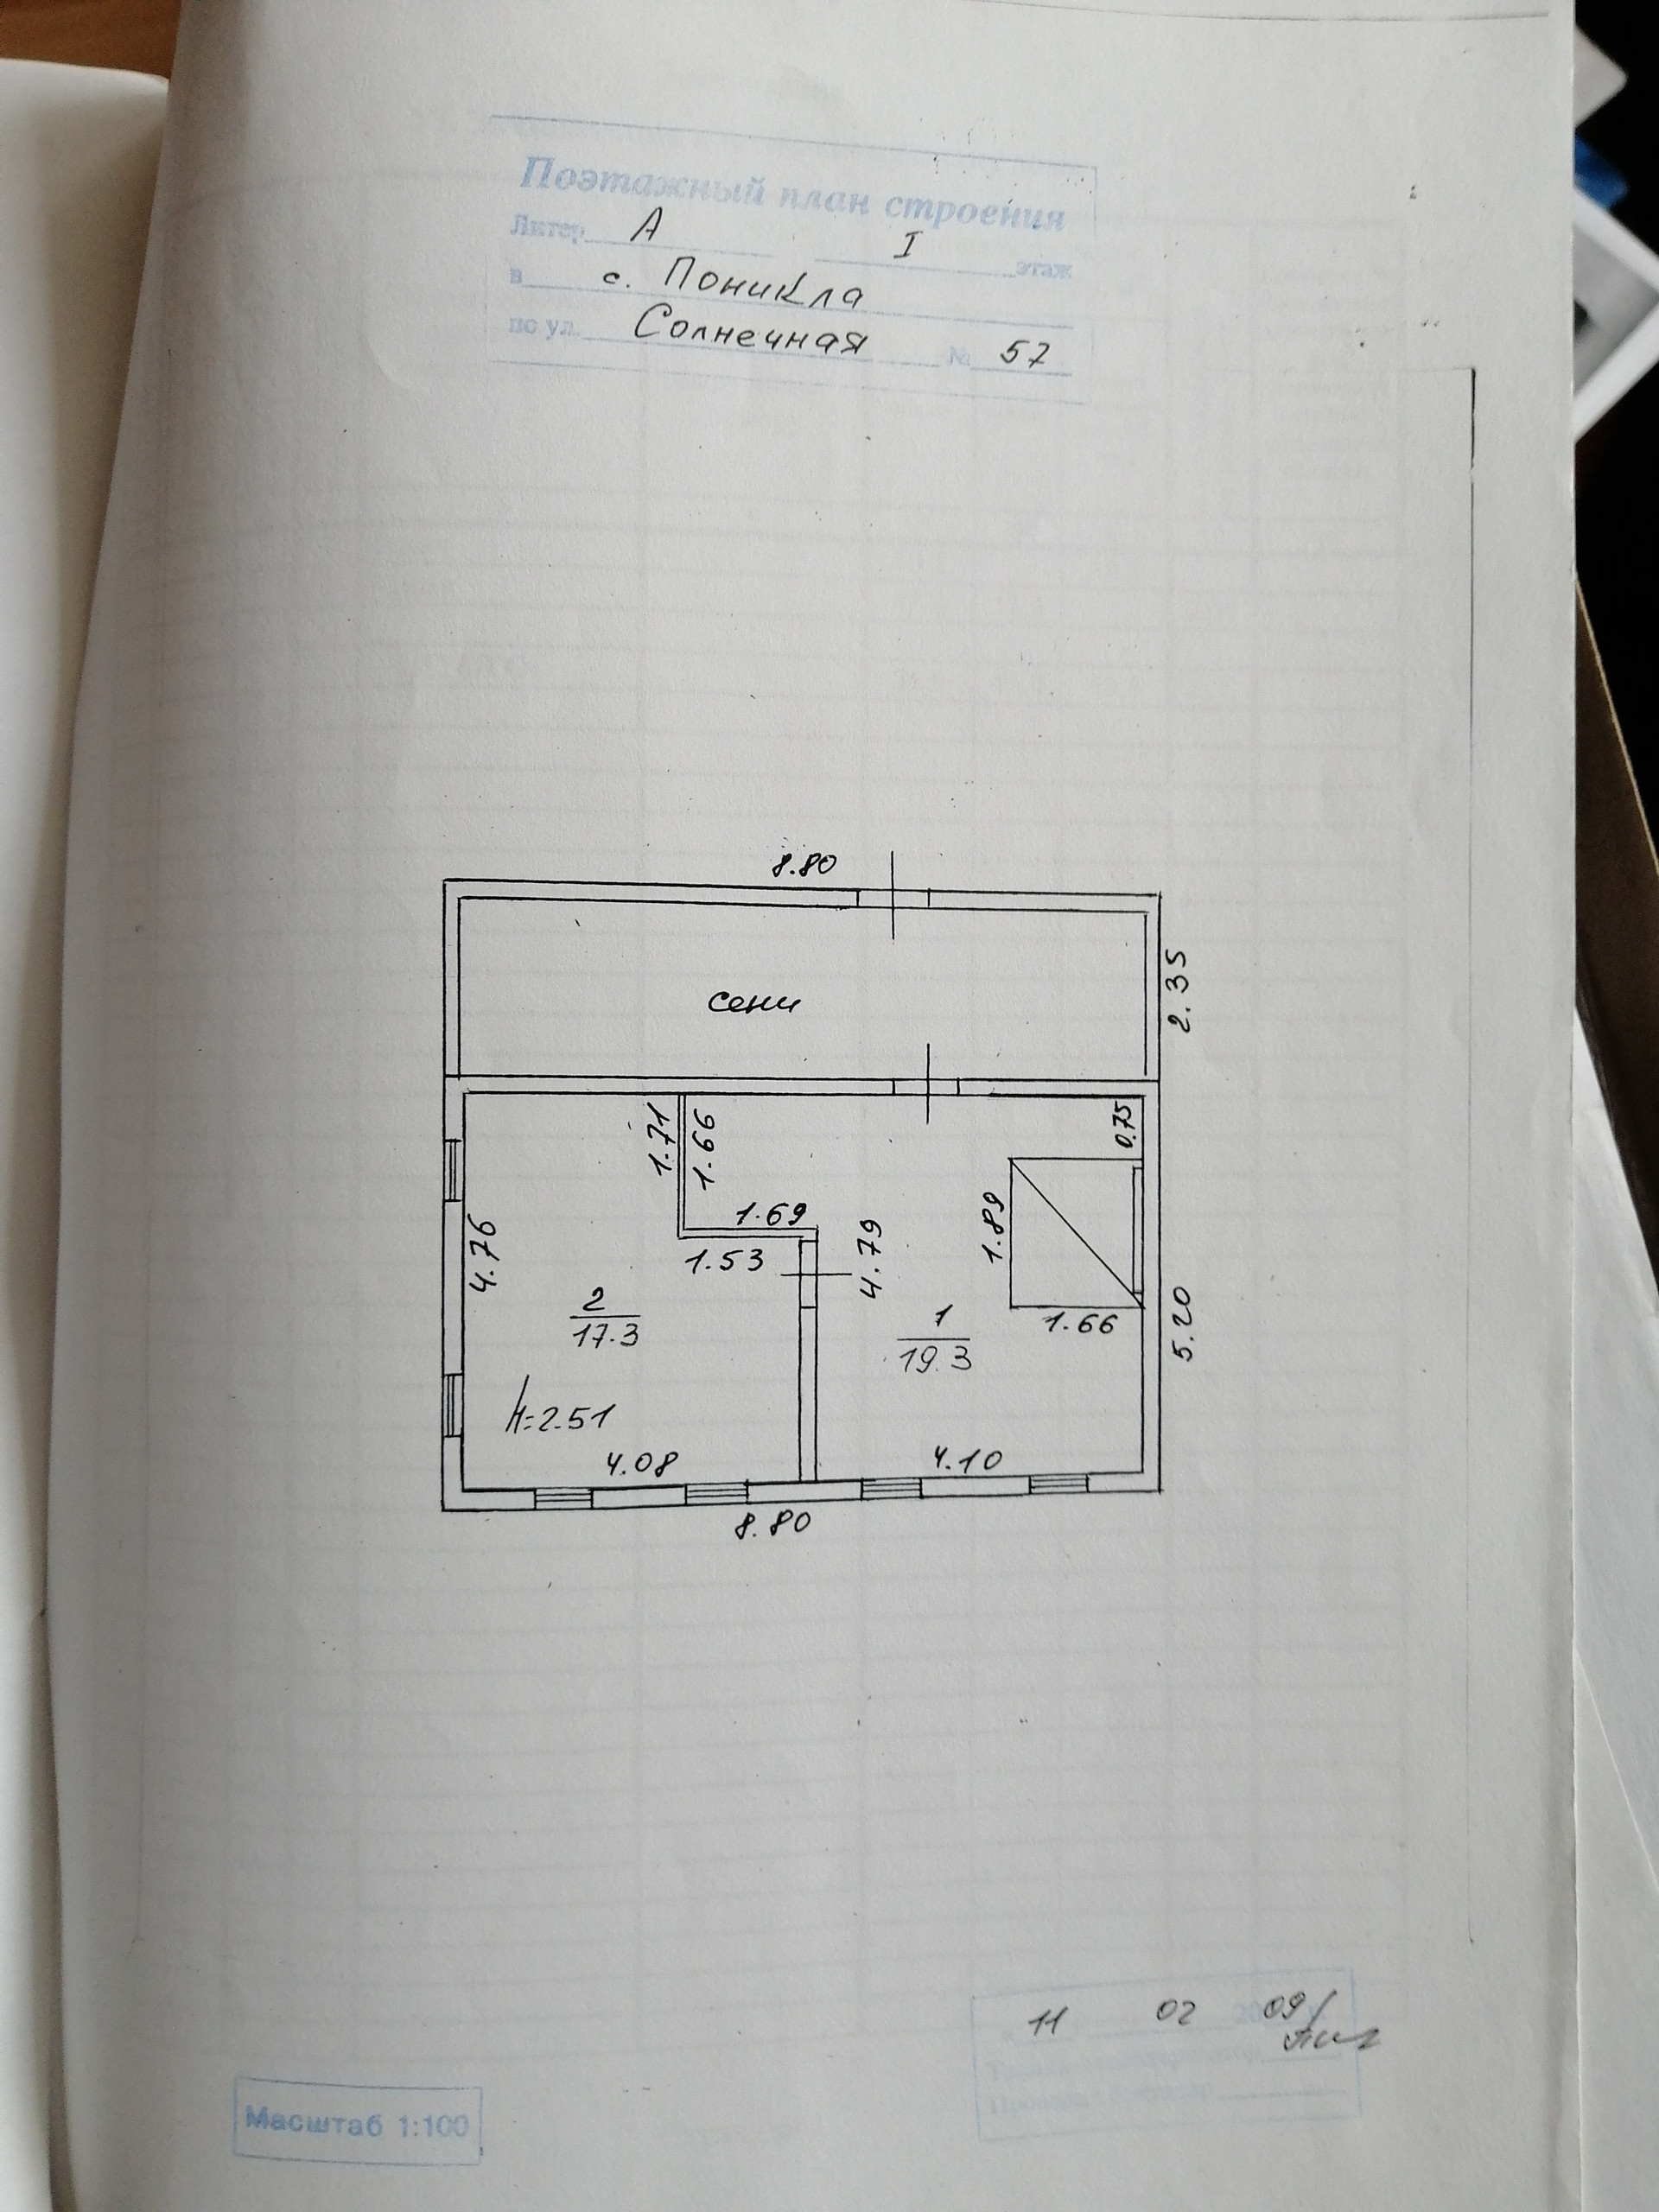 Поэтажный план строения
Литер А I этаж
в с. Поникла
по ул. Солнечная № 57
8.80
2.35
сени
0.75
1.71
1.66
1.69
1.53
4.76
4.79
1.89
1.66
5.20
2
17.3
1
19.3
h=2.51
4.08
4.10
8.80
11 02 09
Масштаб 1:100